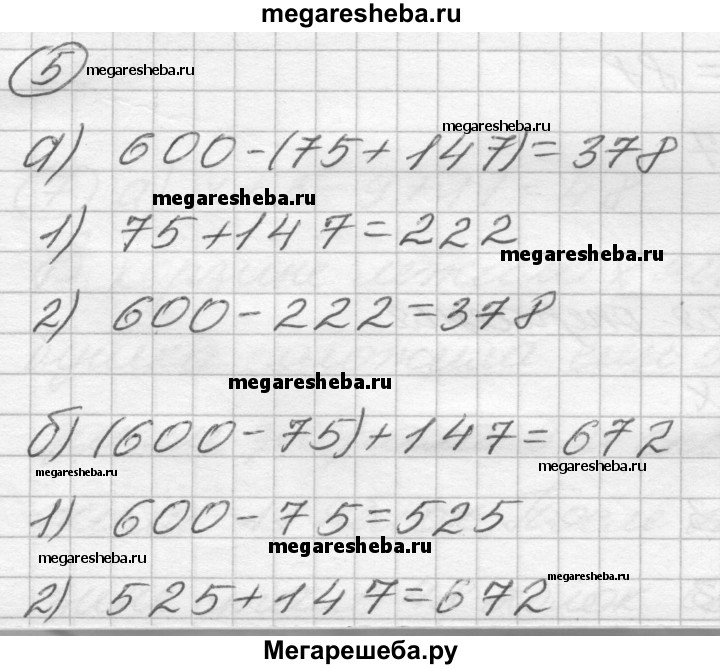 megaresheba.ru
5 megaresheba.ru
megaresheba.ru
а) 600-(75+147)=378
megaresheba.ru
1) 75+147=222
megaresheba.ru
2) 600-222=378
megaresheba.ru
б) (600-75)+147=672
megaresheba.ru megaresheba.ru
1) 600-75=525
megaresheba.ru megaresheba.ru
megaresheba.ru
2) 525+147=672
Мегарешеба.ру